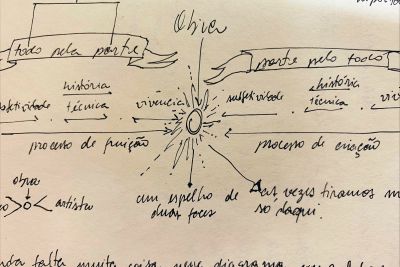 Obra
todo pela parte
parte pelo todo
história
história
subjetividade técnica vivência subjetividade técnica
processo de fruição processo de criação
obra
artista
um espelho de duas faces
às vezes tiramos
só daqui.
falta muita coisa nesse diagrama